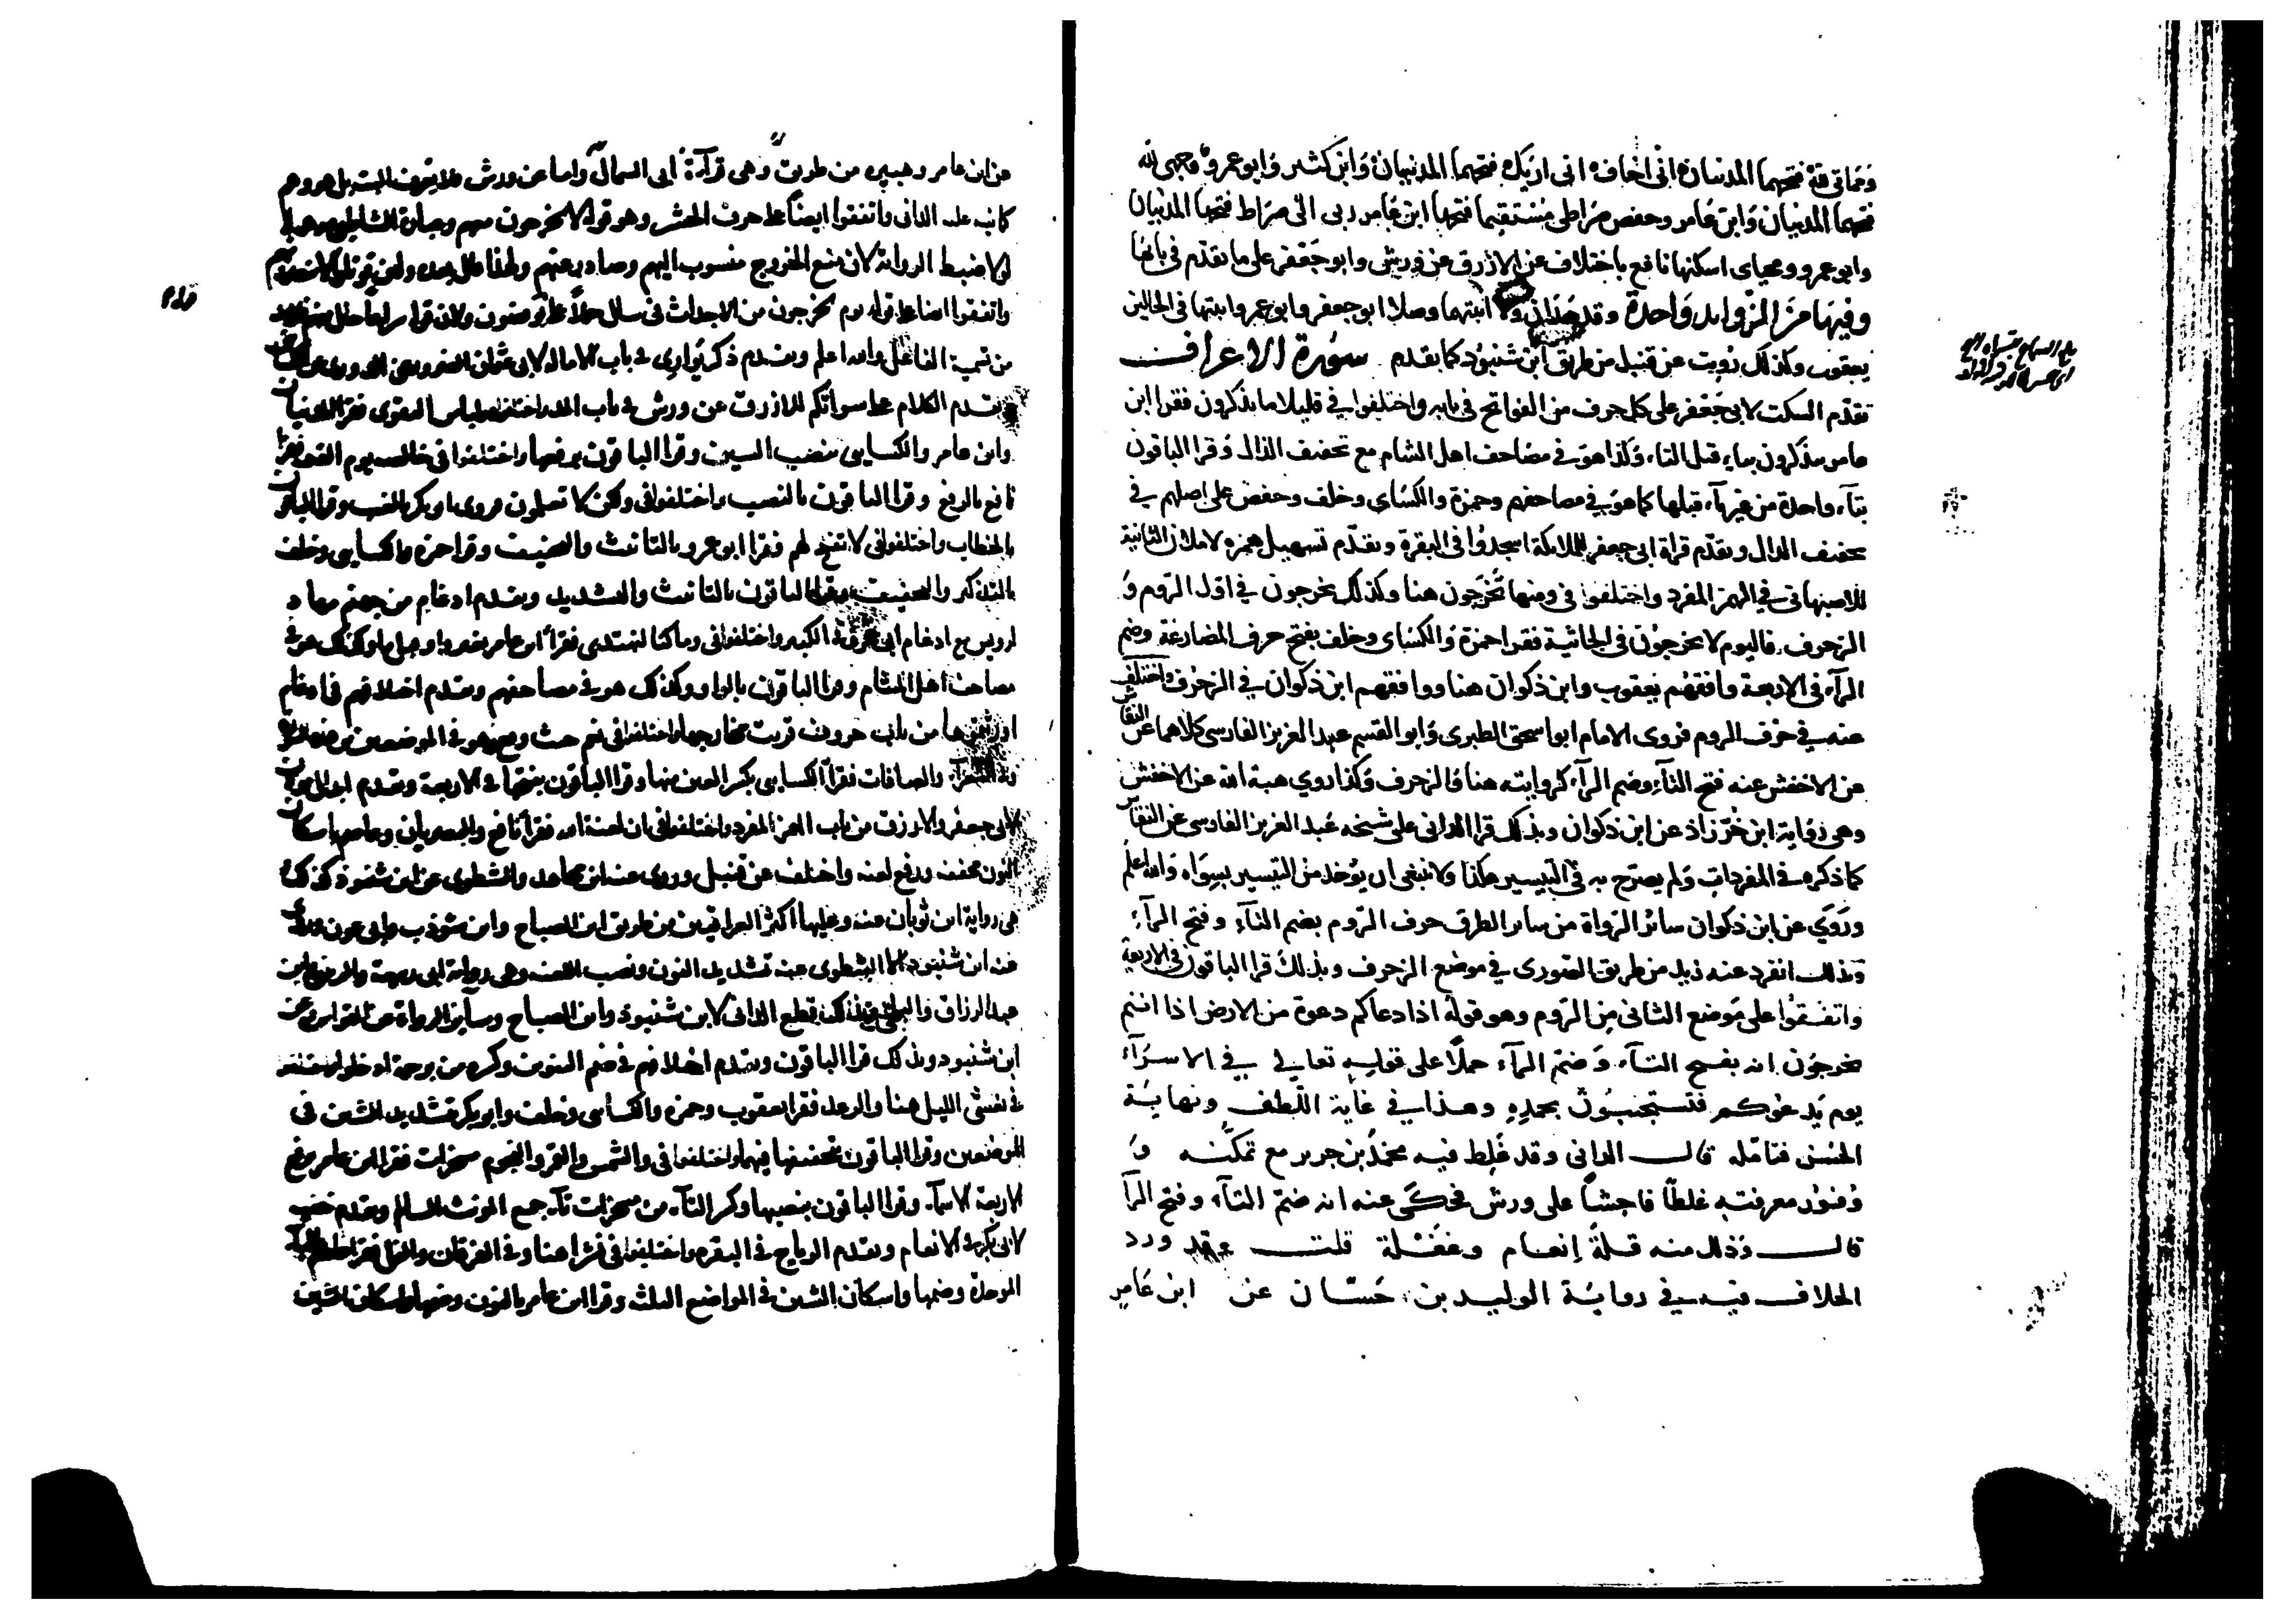 ومماتي لله فتحهما المدنيان اني اخاف اني اريك فتحهما المدنيان وابن كثير وابو عمرو وجهي لله
فتحهما المدنيان وابن عامر وحفص صراطي مستقيما فتحها ابن عامر ربي الى صراط فتحها المدنيان
وابو عمرو ومحياي اسكنها نافع باختلاف عن الازرق عن ورش وابو جعفر على ما تقدم في بابها
وفيها من الزوايد واحدة وقد هدان ولا اثبتهما وصلا ابو جعفر وابو عمرو واثبتها في الحالين
يعقوب وكذلك رويت عن قنبل من طريق ابن شنبوذ كما تقدم سورة الاعراف
تقدم السكت لابي جعفر على كل حرف من الفواتح في بابه واختلفوا في قليلا ما يذكرون فقرا ابن
عامر يتذكرون بياء قبل التاء وكذا هو في مصاحف اهل الشام مع تخفيف الذال وقرا الباقون
بتاء واحدة من غير ياء قبلها كما هو في مصاحفهم وحمزة والكسائي وخلف وحفص على اصلهم في
تخفيف الذال وتقدم قراة ابي جعفر للملايكة اسجدوا في البقرة وتقدم تسهيل همزه لاملان الثانية
للاصبهاني في الهمز المفرد واختلفوا في ومنها تخرجون هنا وكذلك يخرجون في اول الروم و
الزخرف فاليوم لا يخرجون في الجاثية فقرا حمزة والكسائي وخلف بفتح حرف المضارعة وضم
الرآء في الاربعة وافقهم يعقوب وابن ذكوان هنا ووافقهم ابن ذكوان في الزخرف واختلف
عنه في حرف الروم فروى الامام ابو اسحق الطبري وابو القسم عبد العزيز الفارسي كلاهما عن النقاش
عن الاخفش عنه فتح التآء وضم الرآء كروايته هنا والزخرف وكذا روي هبة الله عن الاخفش
وهي رواية ابن خرزاذ عن ابن ذكوان وبذلك قرا الداني على شيخه عبد العزيز الفارسي عن النقاش
كما ذكره في المفردات ولم يصرح به في التيسير هكذا ولا ينبغي ان يؤخذ من التيسير بسواه والله اعلم
وروي عن ابن ذكوان سائر الرواة من سائر الطرق حرف الروم بضم التآء وفتح الرآء
وبذلك انفرد عنه زيد من طريق الصوري في موضع الزخرف وبذلك قرا الباقون في الاربعة
واتفقوا على موضع الثاني من الروم وهو قوله اذا دعاكم دعوة من الارض اذا انتم
تخرجون انه بفتح التآء وضم الرآء حملا على قوله تعالى في الاسرآء
يوم يدعوكم فتستجيبون بحمده وهذا في غاية اللطف ونهاية
الحسن فتامله قال الداني وقد غلط فيه محمد بن جرير مع تمكنه و
وفور معرفته غلطا فاحشا على ورش فحكى عنه انه ضم التآء وفتح الرآ
قال وذلك منه قلة إنعام وغفلة قلت وقد ورد
الخلاف فيه في رواية الوليد بن حسان عن ابن عامر
عن ابن عامر وهبيره من طريق وهي قرآءة ابي السمال واما عن ورش فلا يعرف البتة بل هو وهم
كما نبه عليه الداني واتفقوا ايضا على حرف الحشر وهو قوله لا يخرجون معهم وعبارة الشاطبي موهمة
لولا ضبط الرواة لان منع الخروج منسوب اليهم وصادر عنهم ولهذا قال بعده ولئن قوتلوا لا ينصرونهم
واتفقوا ايضا على قوله يوم يخرجون من الاجداث في سال حملا على يوفضون ولان قوله سراعا حال منهم
من تسمية الفاعل والله اعلم وتقدم ذكر يواري في باب الامالة لابي عثمان الضرير عن الدوري عن الكسائي
وتقدم الكلام على سواتكم للازرق عن ورش في باب المد واختلفوا في لباس التقوى فقرا المدنيان
وابن عامر والكسايي بنصب السين وقرا الباقون برفعها واختلفوا في خالصة يوم القيمة فقرا
نافع بالرفع وقرا الباقون بالنصب واختلفوا في ولكن لا تعلمون فروى ابو بكر بالغيب وقرا الباقون
بالخطاب واختلفوا في لا تفتح لهم فقرا ابو عمرو بالتانيث والتخفيف وقرا حمزه والكسايي وخلف
بالتذكير والتخفيف وقرا الباقون بالتانيث والتشديد وتقدم ادغام من جهنم مهاد
لرويس مع ادغام ابي عمرو في الكبير واختلفوا في وما كنا لنهتدي فقرا ابن عامر بغير واو قبل ما وكذلك هو في
مصاحف اهل الشام وقرا الباقون بالواو وكذلك هو في مصاحفهم وتقدم اختلافهم في ادغام
اورثتموها من باب حروف قربت مخارجها واختلفوا في نعم حيث وقع وهو في الموضعين من هذه السورة
وفي الشعرآء والصافات فقرا الكسايي بكسر العين منها وقرا الباقون بفتحها في الاربعة وتقدم ابدال موذن
لابي جعفر والازرق من باب الهمز المفرد واختلفوا في ان لعنة الله فقرا نافع والبصريان وعاصم باسكان
النون مخففه ورفع لعنه واختلف عن قنبل فروى عنه ابن مجاهد والشطوي عن ابن شنبوذ كذلك
هي رواية ابن ثوبان عنه وعليها اكثر العراقيين من طريق ابن الصباح وابن شوذب وابي عون وروى
عنه ابن شنبوذ الا الشطوي عنه تشديد النون ونصب اللعنه وهي رواية ابي ربيعة والزينبي وابن
عبد الرزاق والبلخي وبذلك قطع الداني لابن شنبوذ وابن الصباح وسآئر الرواة عن القواس وعن
ابن شنبوذ وبذلك قرا الباقون وتقدم اختلافهم في ضم التنوين وكسره من برحمة ادخلوا واختلفوا
في يغشي الليل هنا والرعد فقرا يعقوب وحمزه والكسآئي وخلف وابو بكر بتشديد الشين في
الموضعين وقرا الباقون بتخفيفها فيهما واختلفوا في والشمس والقمر والنجوم مسخرات فقرا ابن عامر برفع
الاربعة الاسمآء وقرا الباقون بنصبها وكسر التآء من مسخرات لانها تآء جمع المونث السالم وتقدم خفيه
لابي بكر في الانعام وتقدم الرياح في البقره واختلفوا في نشرا هنا وفي الفرقان والنمل فقرا عاصم بالبآء
الموحدة وضمها واسكان الشين في المواضع الثلثه وقرا ابن عامر بالنون وضمها واسكان الشين